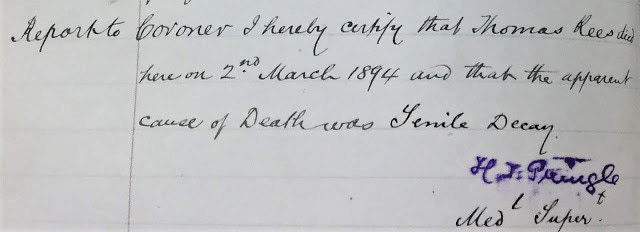 Report to Coroner I hereby certify that Thomas Rees died
here on 2nd March 1894 and that the apparent
cause of Death was Senile Decay.
H. T. Pringle
Medl Supert.